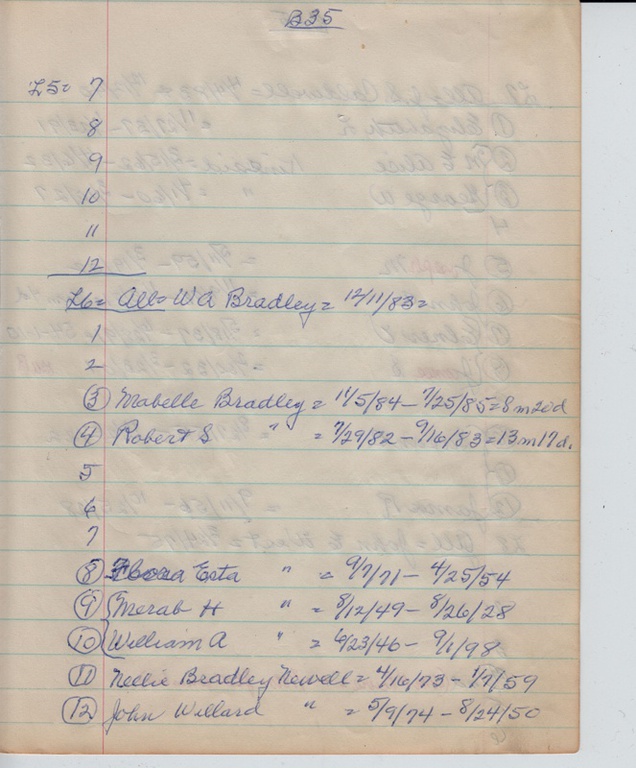 B35
L5= 7
8
9
10
11
12
L6= All= W A Bradley = 12/11/83=
1
2
③ Mabelle Bradley = 11/5/84 - 7/25/85 = 8 m 20 d
④ Robert S " = 7/29/82 - 9/16/83 = 13 m 17 d.
5
6
7
⑧ Esta " = 9/7/71 - 4/25/54
⑨ Merab H " = 8/12/49 - 8/26/28
⑩ William A " = 6/23/46 - 9/1/98
⑪ Nellie Bradley Newell = 4/16/73 - 1/7/59
⑫ John Willard " = 5/9/74 - 8/24/50